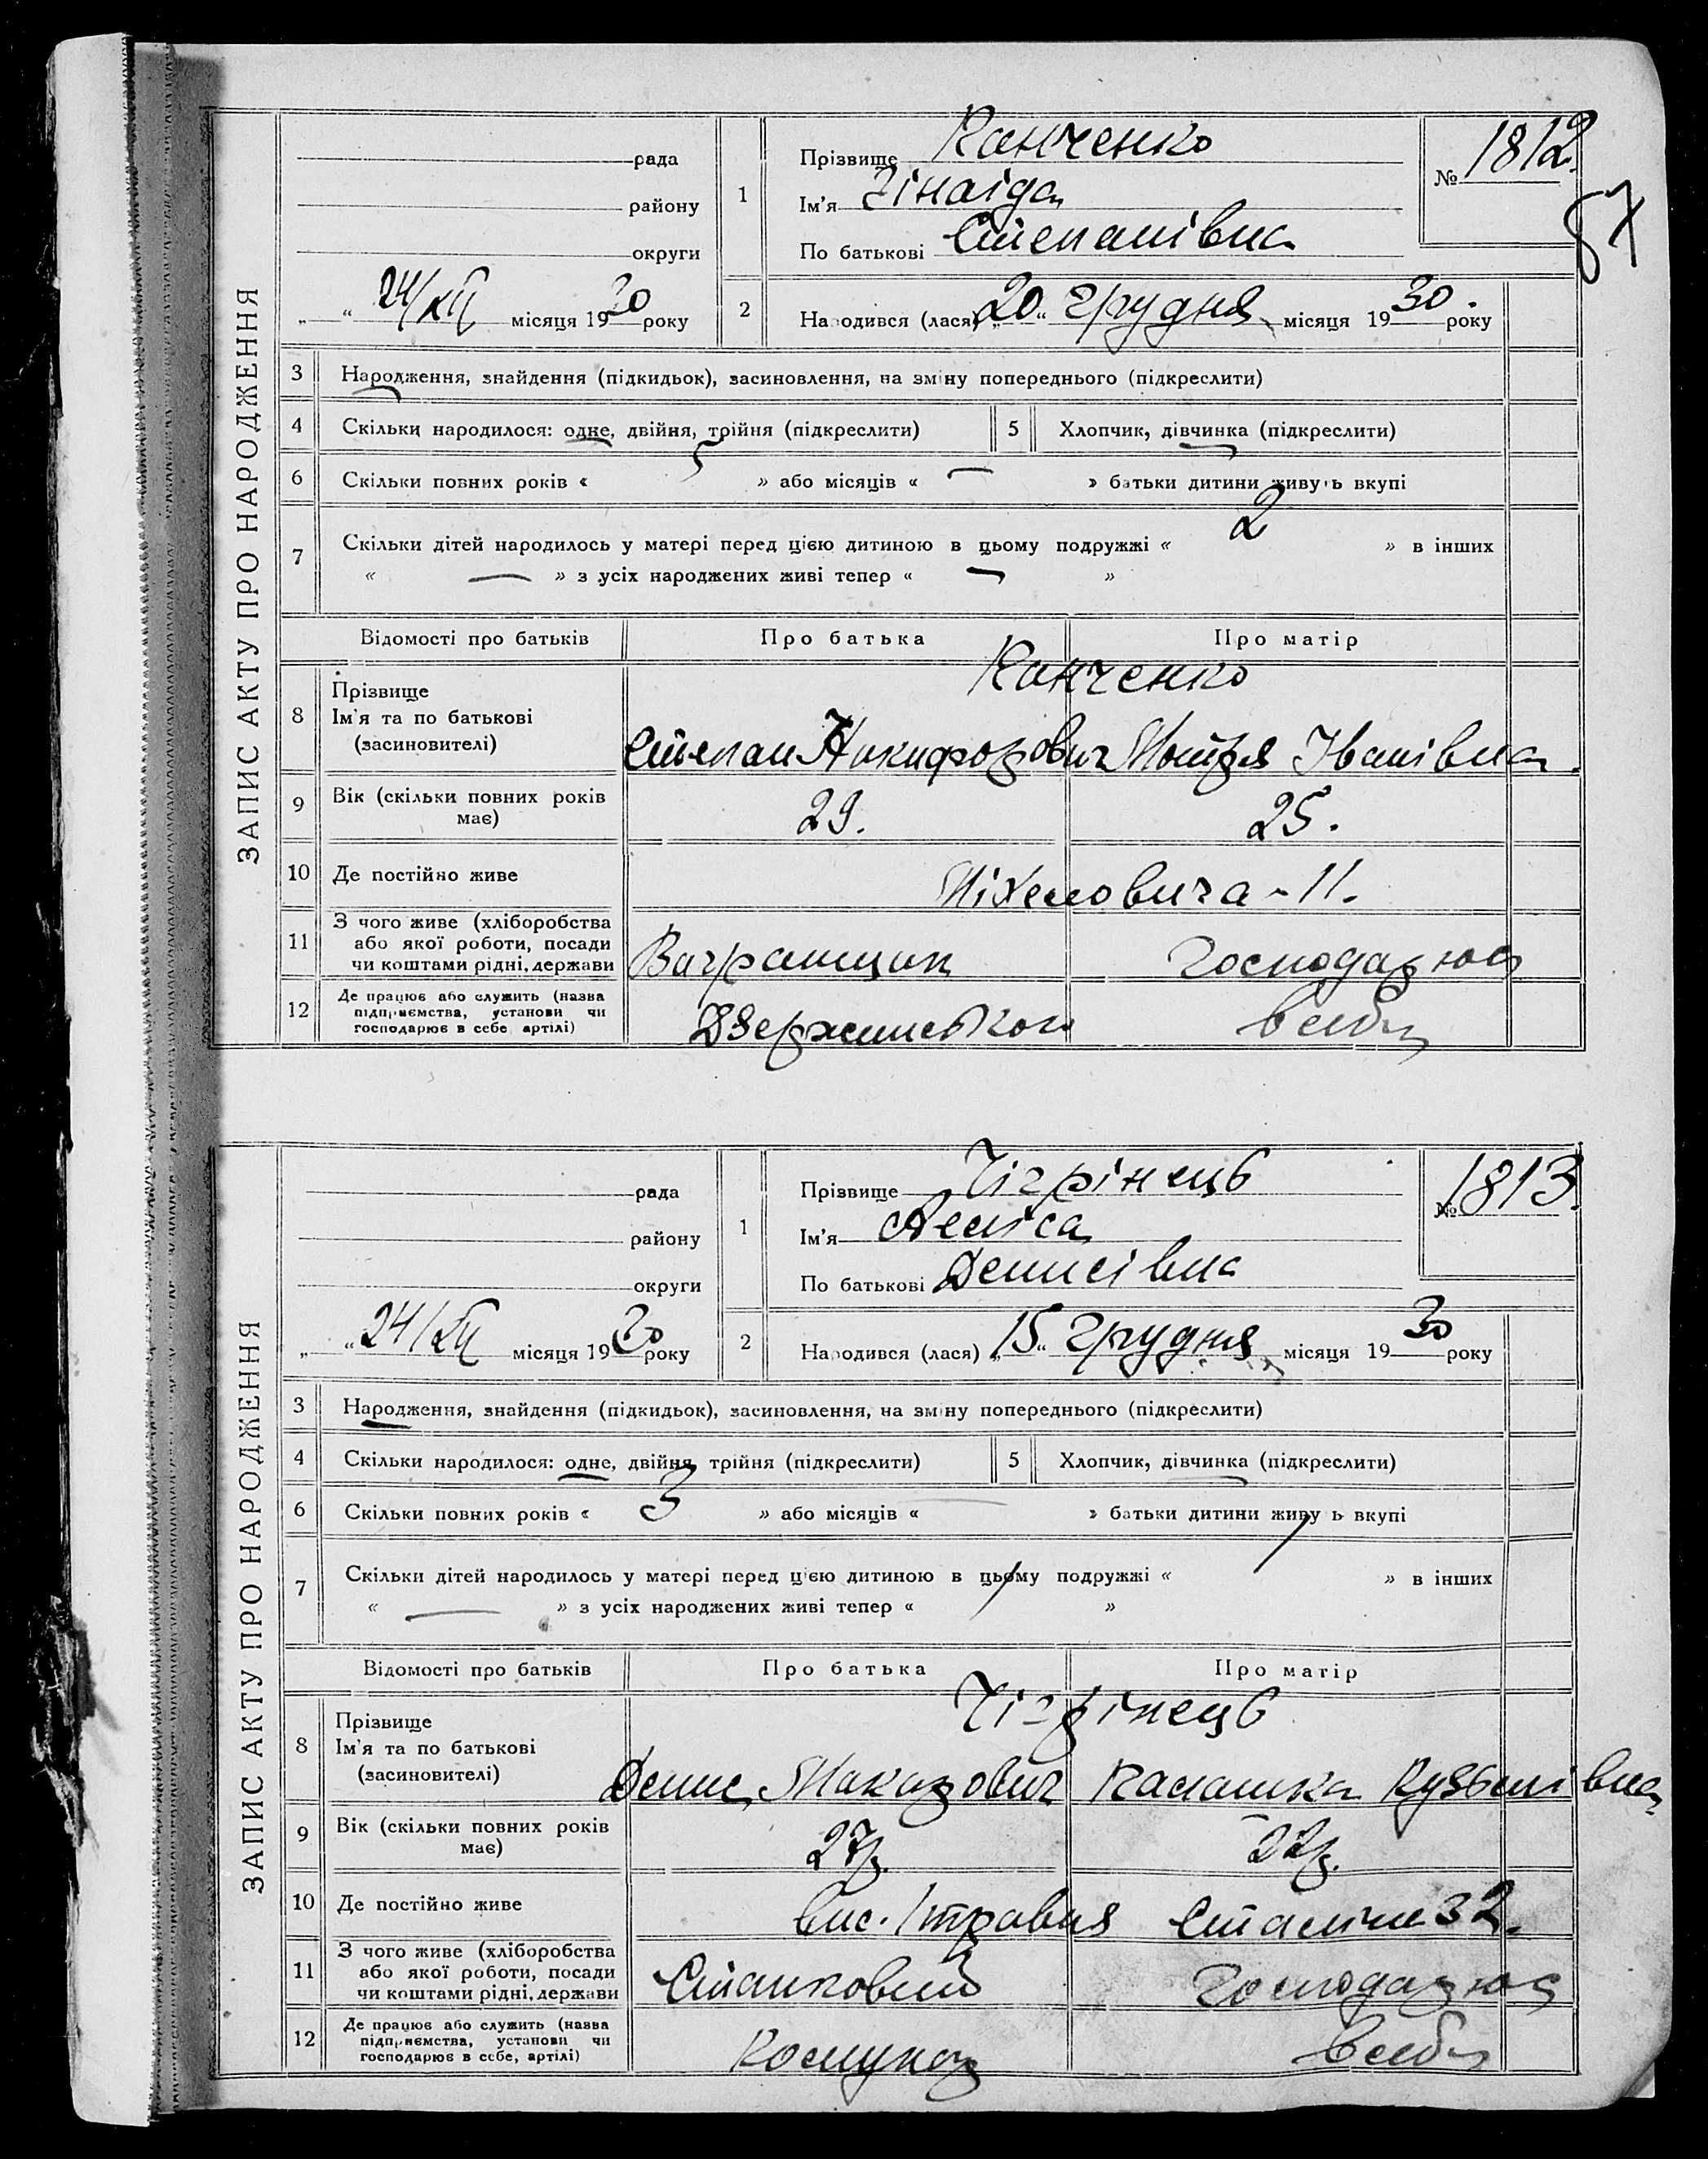 ЗАПИС АКТУ ПРО НАРОДЖЕННЯ
рада
району
округи
„ “ 24/XII місяця 1930 року
1
Прізвище Канченко
Ім'я Зінаіда
По батькові Степанівна
№ 1812.
57
2
Народився (лася) „20“ грудня місяця 1930. року
3 Народження, знайдення (підкидьок), засиновлення, на зміну попереднього (підкреслити)
4 Скільки народилося: одне, двійня, трійня (підкреслити) 5 Хлопчик, дівчинка (підкреслити)
6 Скільки повних років « 5 » або місяців « — » батьки дитини живуть вкупі
7 Скільки дітей народилось у матері перед цією дитиною в цьому подружжі « 2 » в інших
« — » з усіх народжених живі тепер « — »
Відомості про батьків Про батька Про матір
8 Прізвище Канченко
Ім'я та по батькові
(засиновителі) Степан Никифорович Мотря Іванівна
9 Вік (скільки повних років має) 29. 25.
10 Де постійно живе 11.
11 З чого живе (хліборобства
або якої роботи, посади
чи коштами рідні, держави Вагранщик Господарює
12 Де працює або служить (назва
підприємства, установи чи
господарює в себе, артілі) Дзержинського в себе
ЗАПИС АКТУ ПРО НАРОДЖЕННЯ
рада
району
округи
„ “ 24/XII місяця 1930 року
1
Прізвище Чігрінець
Ім'я Леніса
По батькові Денисівна
№ 1813.
2
Народився (лася) „15“ грудня місяця 1930 року
3 Народження, знайдення (підкидьок), засиновлення, на зміну попереднього (підкреслити)
4 Скільки народилося: одне, двійня, трійня (підкреслити) 5 Хлопчик, дівчинка (підкреслити)
6 Скільки повних років « 3 » або місяців « — » батьки дитини живуть вкупі
7 Скільки дітей народилось у матері перед цією дитиною в цьому подружжі « 1 » в інших
« — » з усіх народжених живі тепер « 1 »
Відомості про батьків Про батька Про матір
8 Прізвище Чігрінець
Ім'я та по батькові
(засиновителі) Денис Макарович Палашка Кузьмівна
9 Вік (скільки повних років має) 27р. 22р.
10 Де постійно живе вис. 1 травня Сталіна 32.
11 З чого живе (хліборобства
або якої роботи, посади
чи коштами рідні, держави Станковий Господарює
12 Де працює або служить (назва
підприємства, установи чи
господарює в себе, артілі) Комунар в себе